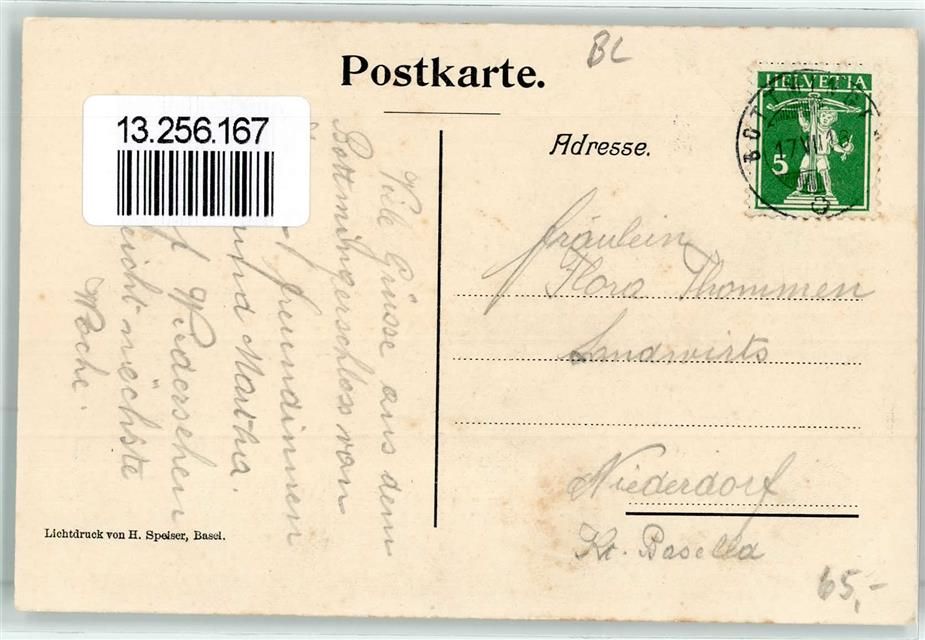 BL
Postkarte.
13.256.167
HELVETIA
5
BOTTMINGEN
17.VI
Adresse.
Viele Grüsse aus dem
Bottmingerschloss von
freundinnen
und Martha.
Wiedersehen
nächste
Woche.
Fräulein
Flora Thommen
Landwirts
Niederdorf
Kt. Baselld
Lichtdruck von H. Speiser, Basel.
65,-